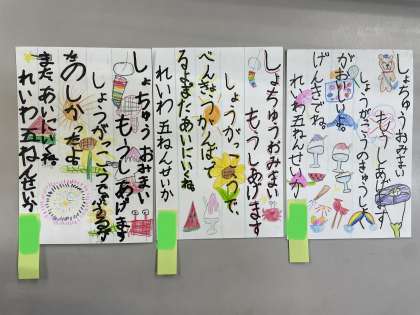 しょちゅうおみまい
もうしあげます
しょうがっこうのきゅうしょく
がおいしいよ。
げんきでね。
れいわ五ねんせいか
しょちゅうおみまい
もうしあげます
しょうがっこうで、
べんきょうがんばって
るよまたあいにいくね。
れいわ五ねんせいか
しょちゅうおみまい
もうしあげます
しょうがっこう
たのしかったよ
またあいにいくね
れいわ五ねんせいか